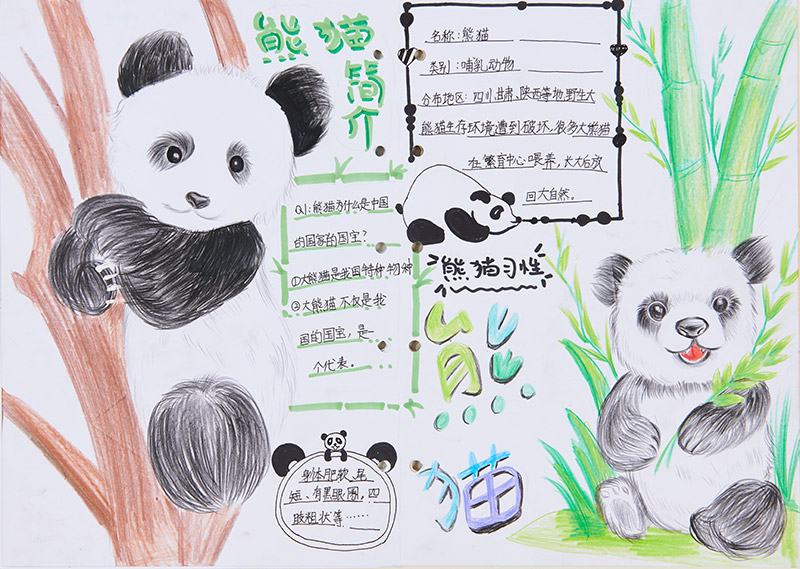 熊猫
简介
名称:熊猫
类别:哺乳动物
分布地区:四川、甘肃、陕西等地,野生大
熊猫生存环境遭到破坏,很多大熊猫
在繁育中心喂养,长大后放
回大自然。
Q1:熊猫为什么是中国
的国宝?
①大熊猫是我国特种物种
②大熊猫不仅是我
国的国宝,是
个代表。
熊猫习性
熊
猫
身体肥软、尾
短、有黑眼圈,四
肢粗状等……